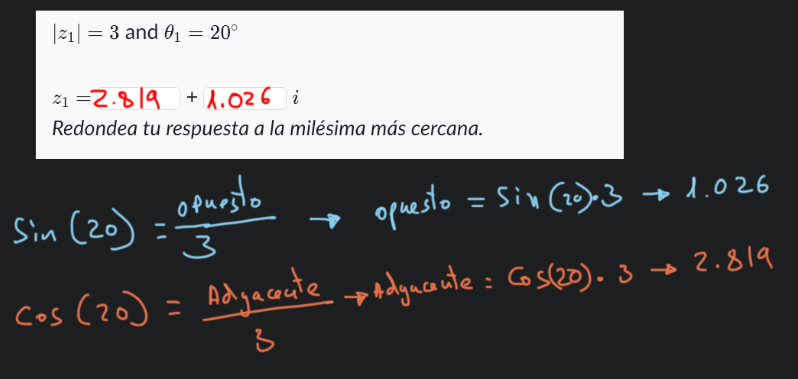 |z₁| = 3 and θ₁ = 20°
z₁ = 2.819 + 1.026 i
Redondea tu respuesta a la milésima más cercana.
Sin (20) = opuesto / 3 → opuesto = Sin (20)·3 → 1.026
Cos (20) = Adyacente / 3 → Adyacente = Cos(20)·3 → 2.819